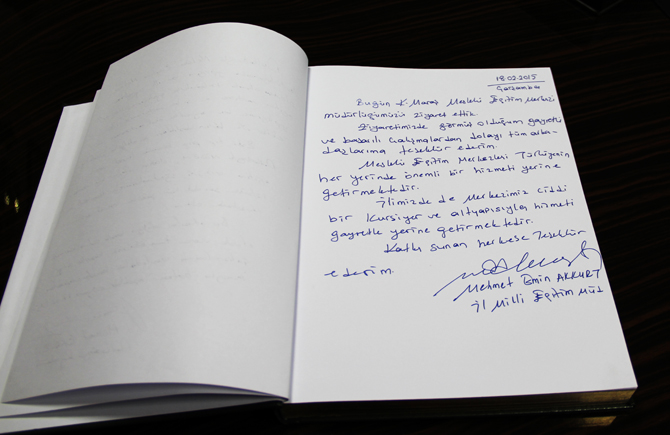 18.02.2015
Çarşamba
Bugün K.Maraş Mesleki Eğitim Merkezi
müdürlüğümüzü ziyaret ettik.
Ziyaretimizde görmüş olduğum gayretli
ve başarılı çalışmalardan dolayı tüm arka-
daşlarıma teşekkür ederim.
Mesleki Eğitim Merkezleri Türkiyenin
her yerinde önemli bir hizmeti yerine
getirmektedir.
İlimizde de Merkezimiz ciddi
bir kursiyer ve altyapısıyla hizmeti
gayretle yerine getirmektedir.
Katkı sunan herkese Teşekkür
ederim.
Mehmet Emin AKKURT
İl Milli Eğitim Müd